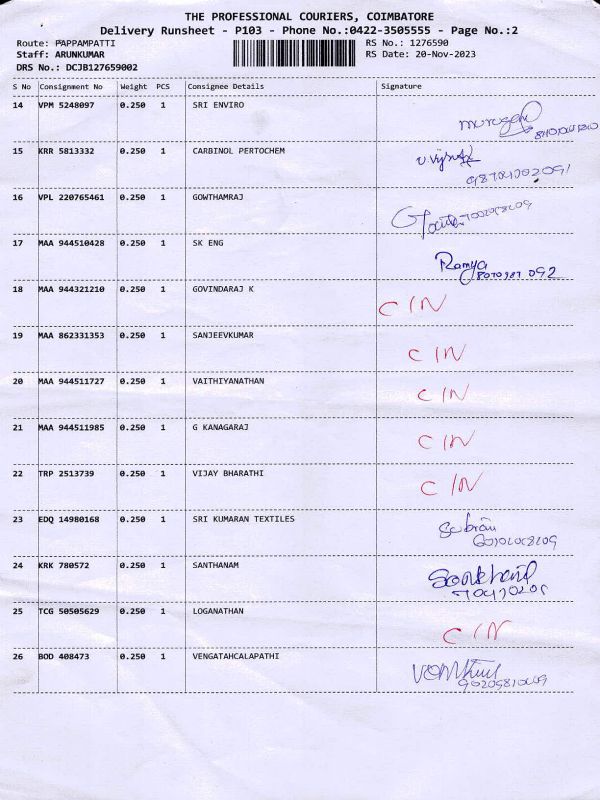 THE PROFESSIONAL COURIERS, COIMBATORE
Delivery Runsheet - P103 - Phone No.:0422-3505555 - Page No.:2
Route: PAPPAMPATTI RS No.: 1276590
Staff: ARUNKUMAR RS Date: 20-Nov-2023
DRS No.: DCJB127659002
S No Consignment No Weight PCS Consignee Details Signature
14 VPM 5248097 0.250 1 SRI ENVIRO
15 KRR 5813332 0.250 1 CARBINOL PERTOCHEM
16 VPL 220765461 0.250 1 GOWTHAMRAJ
17 MAA 944510428 0.250 1 SK ENG Ramya
18 MAA 944321210 0.250 1 GOVINDARAJ K C IN
19 MAA 862331353 0.250 1 SANJEEVKUMAR C IN
20 MAA 944511727 0.250 1 VAITHIYANATHAN C IN
21 MAA 944511985 0.250 1 G KANAGARAJ C IN
22 TRP 2513739 0.250 1 VIJAY BHARATHI C IN
23 EDQ 14980168 0.250 1 SRI KUMARAN TEXTILES
24 KRK 780572 0.250 1 SANTHANAM
25 TCG 50505629 0.250 1 LOGANATHAN C IN
26 BOD 408473 0.250 1 VENGATAHCALAPATHI